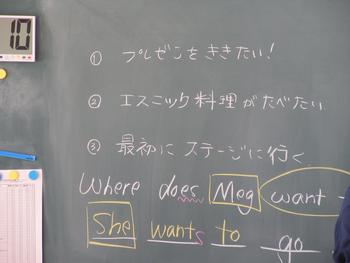 10
① プレゼンをききたい!
② エスニック料理がたべたい
③ 最初にステージに行く
Where does Meg want
She wants to go